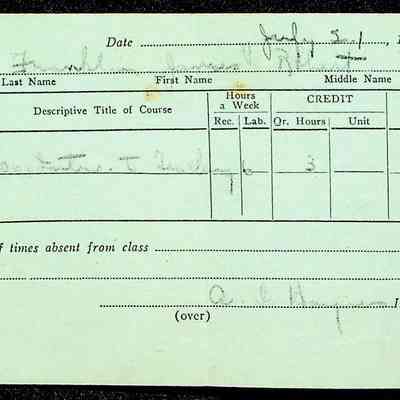 Date July 21, 1
Franklin James
Last Name First Name Middle Name
Descriptive Title of Course Hours a Week CREDIT
Rec. Lab. Qr. Hours Unit
to 6 3
f times absent from class
A. C.
(over)